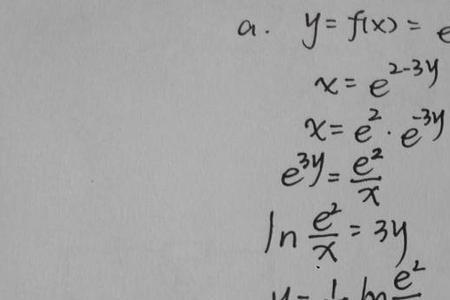 a. y = f(x) =
x = e^{2-3y}
x = e^2 · e^{-3y}
e^{3y} = \frac{e^2}{x}
ln \frac{e^2}{x} = 3y
ln \frac{e^2}